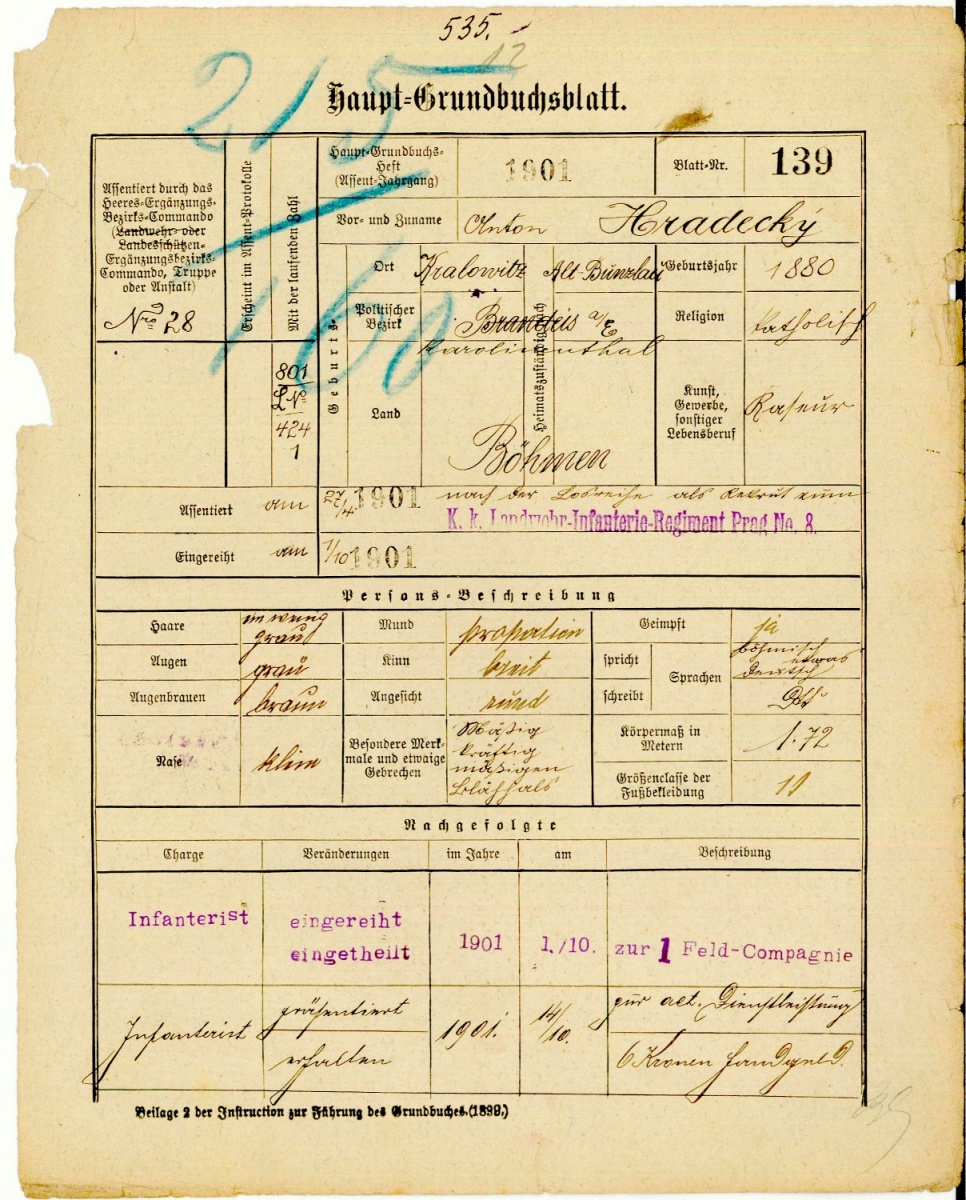 535.
12
215
160
Haupt-Grundbuchsblatt.
Assentiert durch das
Heeres-Ergänzungs-
Bezirks-Commando
(Landwehr- oder
Landesschützen-
Ergänzungsbezirks-
Commando, Truppe
oder Anstalt)
Nro 28
Erscheint im Assent-Protokolle
Mit der laufenden Zahl
801
LNo
424
1
Haupt-Grundbuchs-
Heft
(Assent-Jahrgang)
1901
Blatt-Nr.
139
Vor- und Zuname
Anton Hradecký
Geburts-
Ort
Kralowitz
Heimatszuständig nach
Alt-Bunzlau
Geburtsjahr
1880
Politischer
Bezirk
Brandeis a/E
Karolinenthal
Religion
katholisch
Land
Böhmen
Kunst,
Gewerbe,
sonstiger
Lebensberuf
Raseur
Assentiert am 27/4 1901 nach der Losreihe als Rekrut zum
K. k. Landwehr-Infanterie-Regiment Prag No. 8.
Eingereiht am 1/10 1901
Persons-Beschreibung
Haare
ein wenig
grau
Mund
proportion
Geimpft
ja
Augen
grau
Kinn
breit
spricht
Sprachen
böhmisch
etwas
deutsch
Augenbrauen
braun
Angesicht
rund
schreibt
Dto
Nase
klein
Besondere Merk-
male und etwaige
Gebrechen
Mäßig
kräftig
mäßigen
Blähhals
Körpermaß in
Metern
1.72
Größenclasse der
Fußbekleidung
10
Nachgefolgte
Charge
Veränderungen
im Jahre
am
Beschreibung
Infanterist
eingereiht
eingetheilt
1901
1./10.
zur 1 Feld-Compagnie
Infanterist
präsentiert
1901.
14/10.
zur act. Dienstleistung
erhalten
6 Kronen Handgeld.
Beilage 2 der Instruction zur Führung des Grundbuches.(1899.)